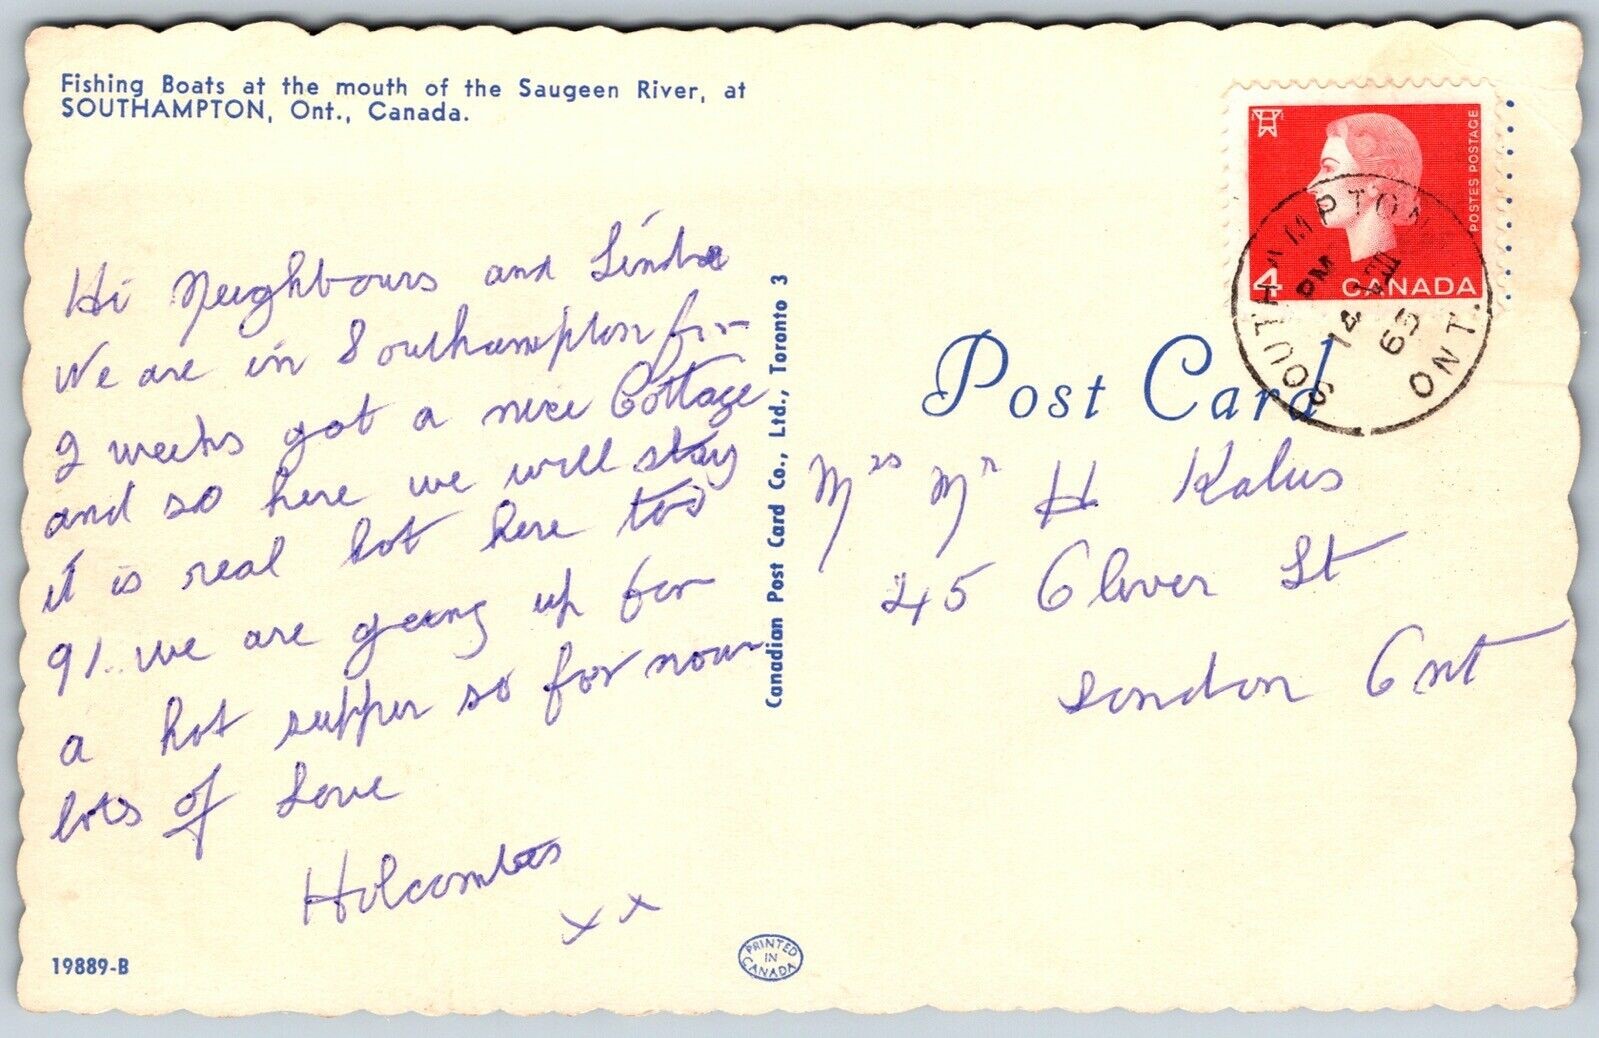 Fishing Boats at the mouth of the Saugeen River, at
SOUTHAMPTON, Ont., Canada.
Hi Neighbours and Linda
We are in Southampton for
2 weeks got a nice Cottage
and so here we will stay
it is real hot here too
91.. we are going up for
a hot supper so for now
lots of Love
Holcombes
x x
19889-B
PRINTED
IN
CANADA
Canadian Post Card Co., Ltd., Toronto 3
Post Card
4
CANADA
POSTES POSTAGE
SOUTHAMPTON
PM
14
65
ONT.
Mrs Mr H Kalus
45 Clover St
London Ont